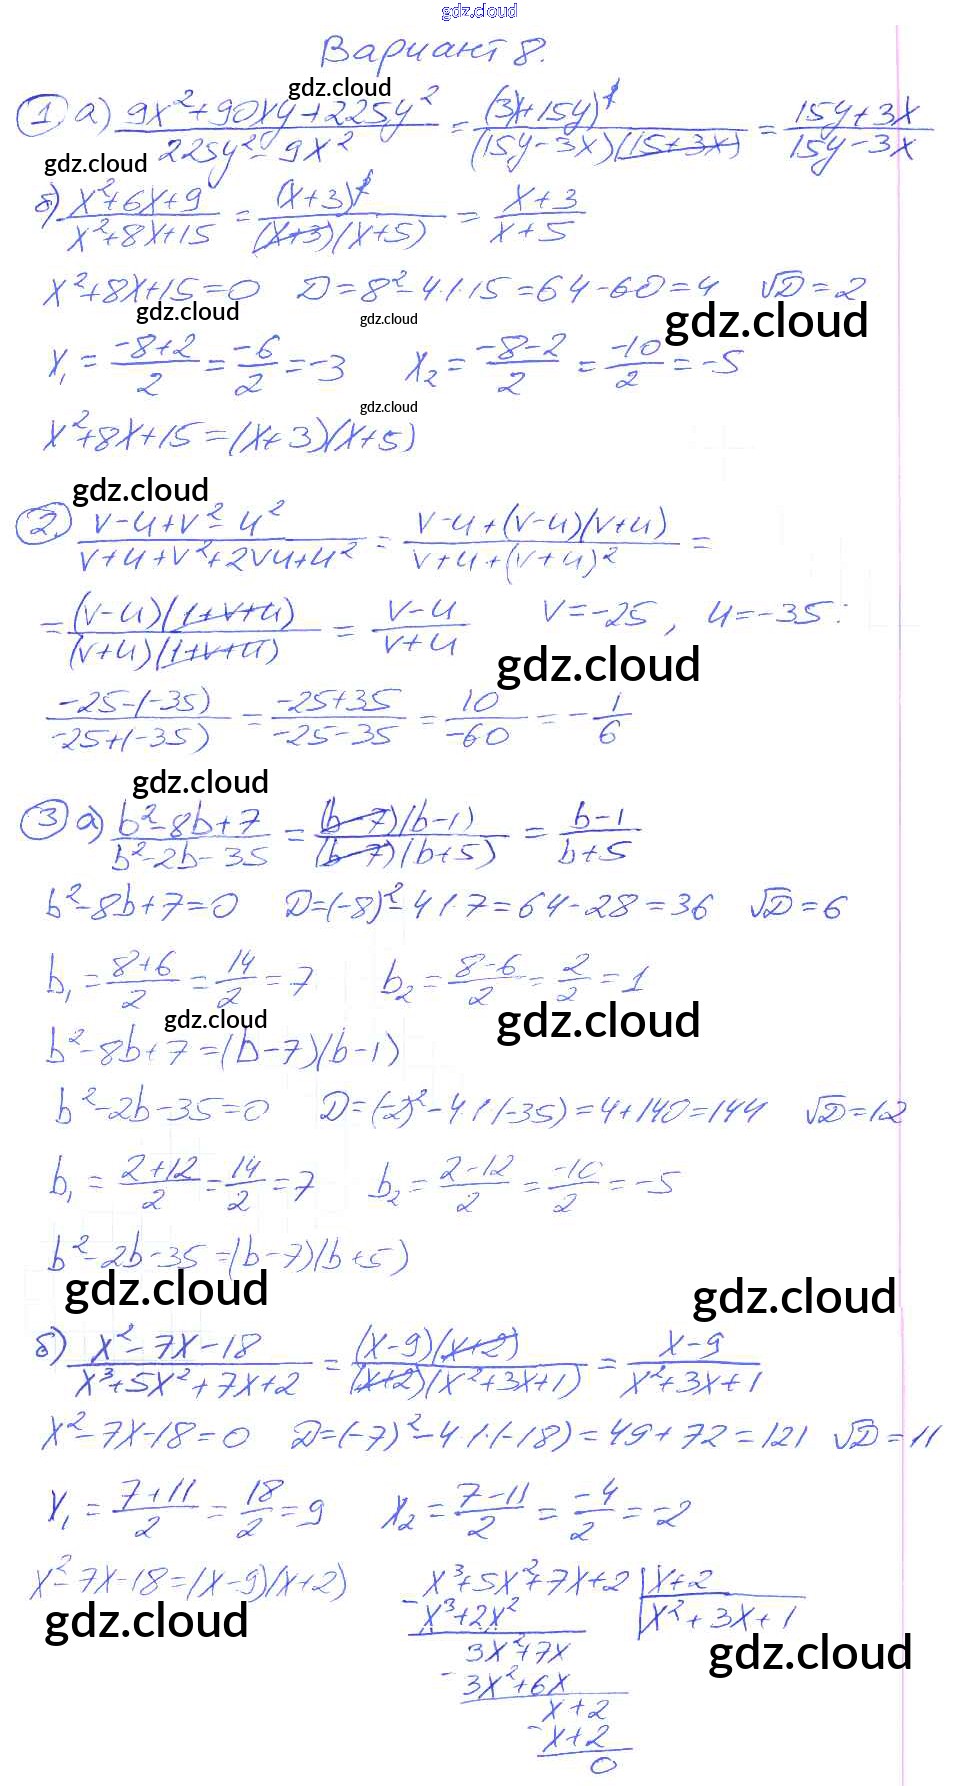 gdz.cloud
Вариант 8.
gdz.cloud
1 а) (9x²+90xy+225y²)/(225y²-9x²) = (3x+15y)²/((15y-3x)(15+3x)) = (15y+3x)/(15y-3x)
gdz.cloud
б) (x²+6x+9)/(x²+8x+15) = (x+3)²/((x+3)(x+5)) = (x+3)/(x+5)
x²+8x+15=0 D=8²-4·1·15=64-60=4 √D=2
gdz.cloud gdz.cloud gdz.cloud
x₁=(-8+2)/2=-6/2=-3 x₂=(-8-2)/2=-10/2=-5
gdz.cloud
x²+8x+15=(x+3)(x+5)
gdz.cloud
2. (v-u+v²-u²)/(v+u+v²+2vu+u²) = (v-u+(v-u)(v+u))/(v+u+(v+u)²) =
= ((v-u)(1+v+u))/((v+u)(1+v+u)) = (v-u)/(v+u) v=-25, u=-35:
gdz.cloud
(-25-(-35))/(-25+(-35)) = (-25+35)/(-25-35) = 10/-60 = -1/6
gdz.cloud
3 а) (b²-8b+7)/(b²-2b-35) = ((b-7)(b-1))/((b-7)(b+5)) = (b-1)/(b+5)
b²-8b+7=0 D=(-8)²-4·1·7=64-28=36 √D=6
b₁=(8+6)/2=14/2=7 b₂=(8-6)/2=2/2=1
gdz.cloud gdz.cloud
b²-8b+7=(b-7)(b-1)
b²-2b-35=0 D=(-2)²-4·1·(-35)=4+140=144 √D=12
b₁=(2+12)/2=14/2=7 b₂=(2-12)/2=-10/2=-5
b²-2b-35=(b-7)(b+5)
gdz.cloud gdz.cloud
б) (x²-7x-18)/(x³+5x²+7x+2) = ((x-9)(x+2))/((x+2)(x²+3x+1)) = (x-9)/(x²+3x+1)
x²-7x-18=0 D=(-7)²-4·1·(-18)=49+72=121 √D=11
x₁=(7+11)/2=18/2=9 x₂=(7-11)/2=-4/2=-2
x²-7x-18=(x-9)(x+2) x³+5x²+7x+2 | x+2
gdz.cloud - x³+2x² x²+3x+1
3x²+7x gdz.cloud
- 3x²+6x
x+2
- x+2
0